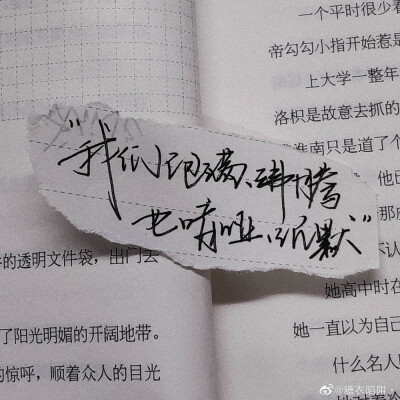 一个平时很少看
帝勾勾小指开始惹是
上大学一整年
洛枳是故意去抓的
淮南只是道了个
他已
那
不认
她高中时在
她一直以为自己
什么名人
"我们饱满、沸腾
也喑哑、沉默"
的透明文件袋，出门去
了阳光明媚的开阔地带。
的惊呼，顺着众人的目光
@糖衣陷阱.